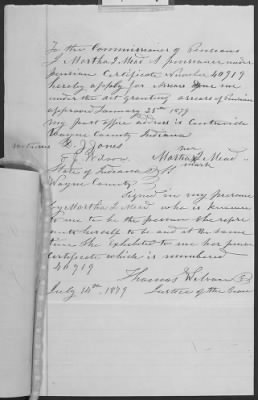 To the Commissioner of Pensions
I Martha J Mead A pensioner under
Pension Certificate Number 40919
hereby apply for Arrears due me
under the act granting arrears of Pensions
approved January 25th 1879
My post office address is Centreville
Wayne County Indiana
witness J. J. Jones her
E. J. Wilson Martha J Mead
mark
State of Indiana
Wayne County
Signed in my presence
by Martha J Mead who is known
to me to be the person She repre
sents herself to be and at the same
time She exhibited to me her pension
certificate which is numbered
40919
Thomas
July 14th 1879 Justice of the Peace